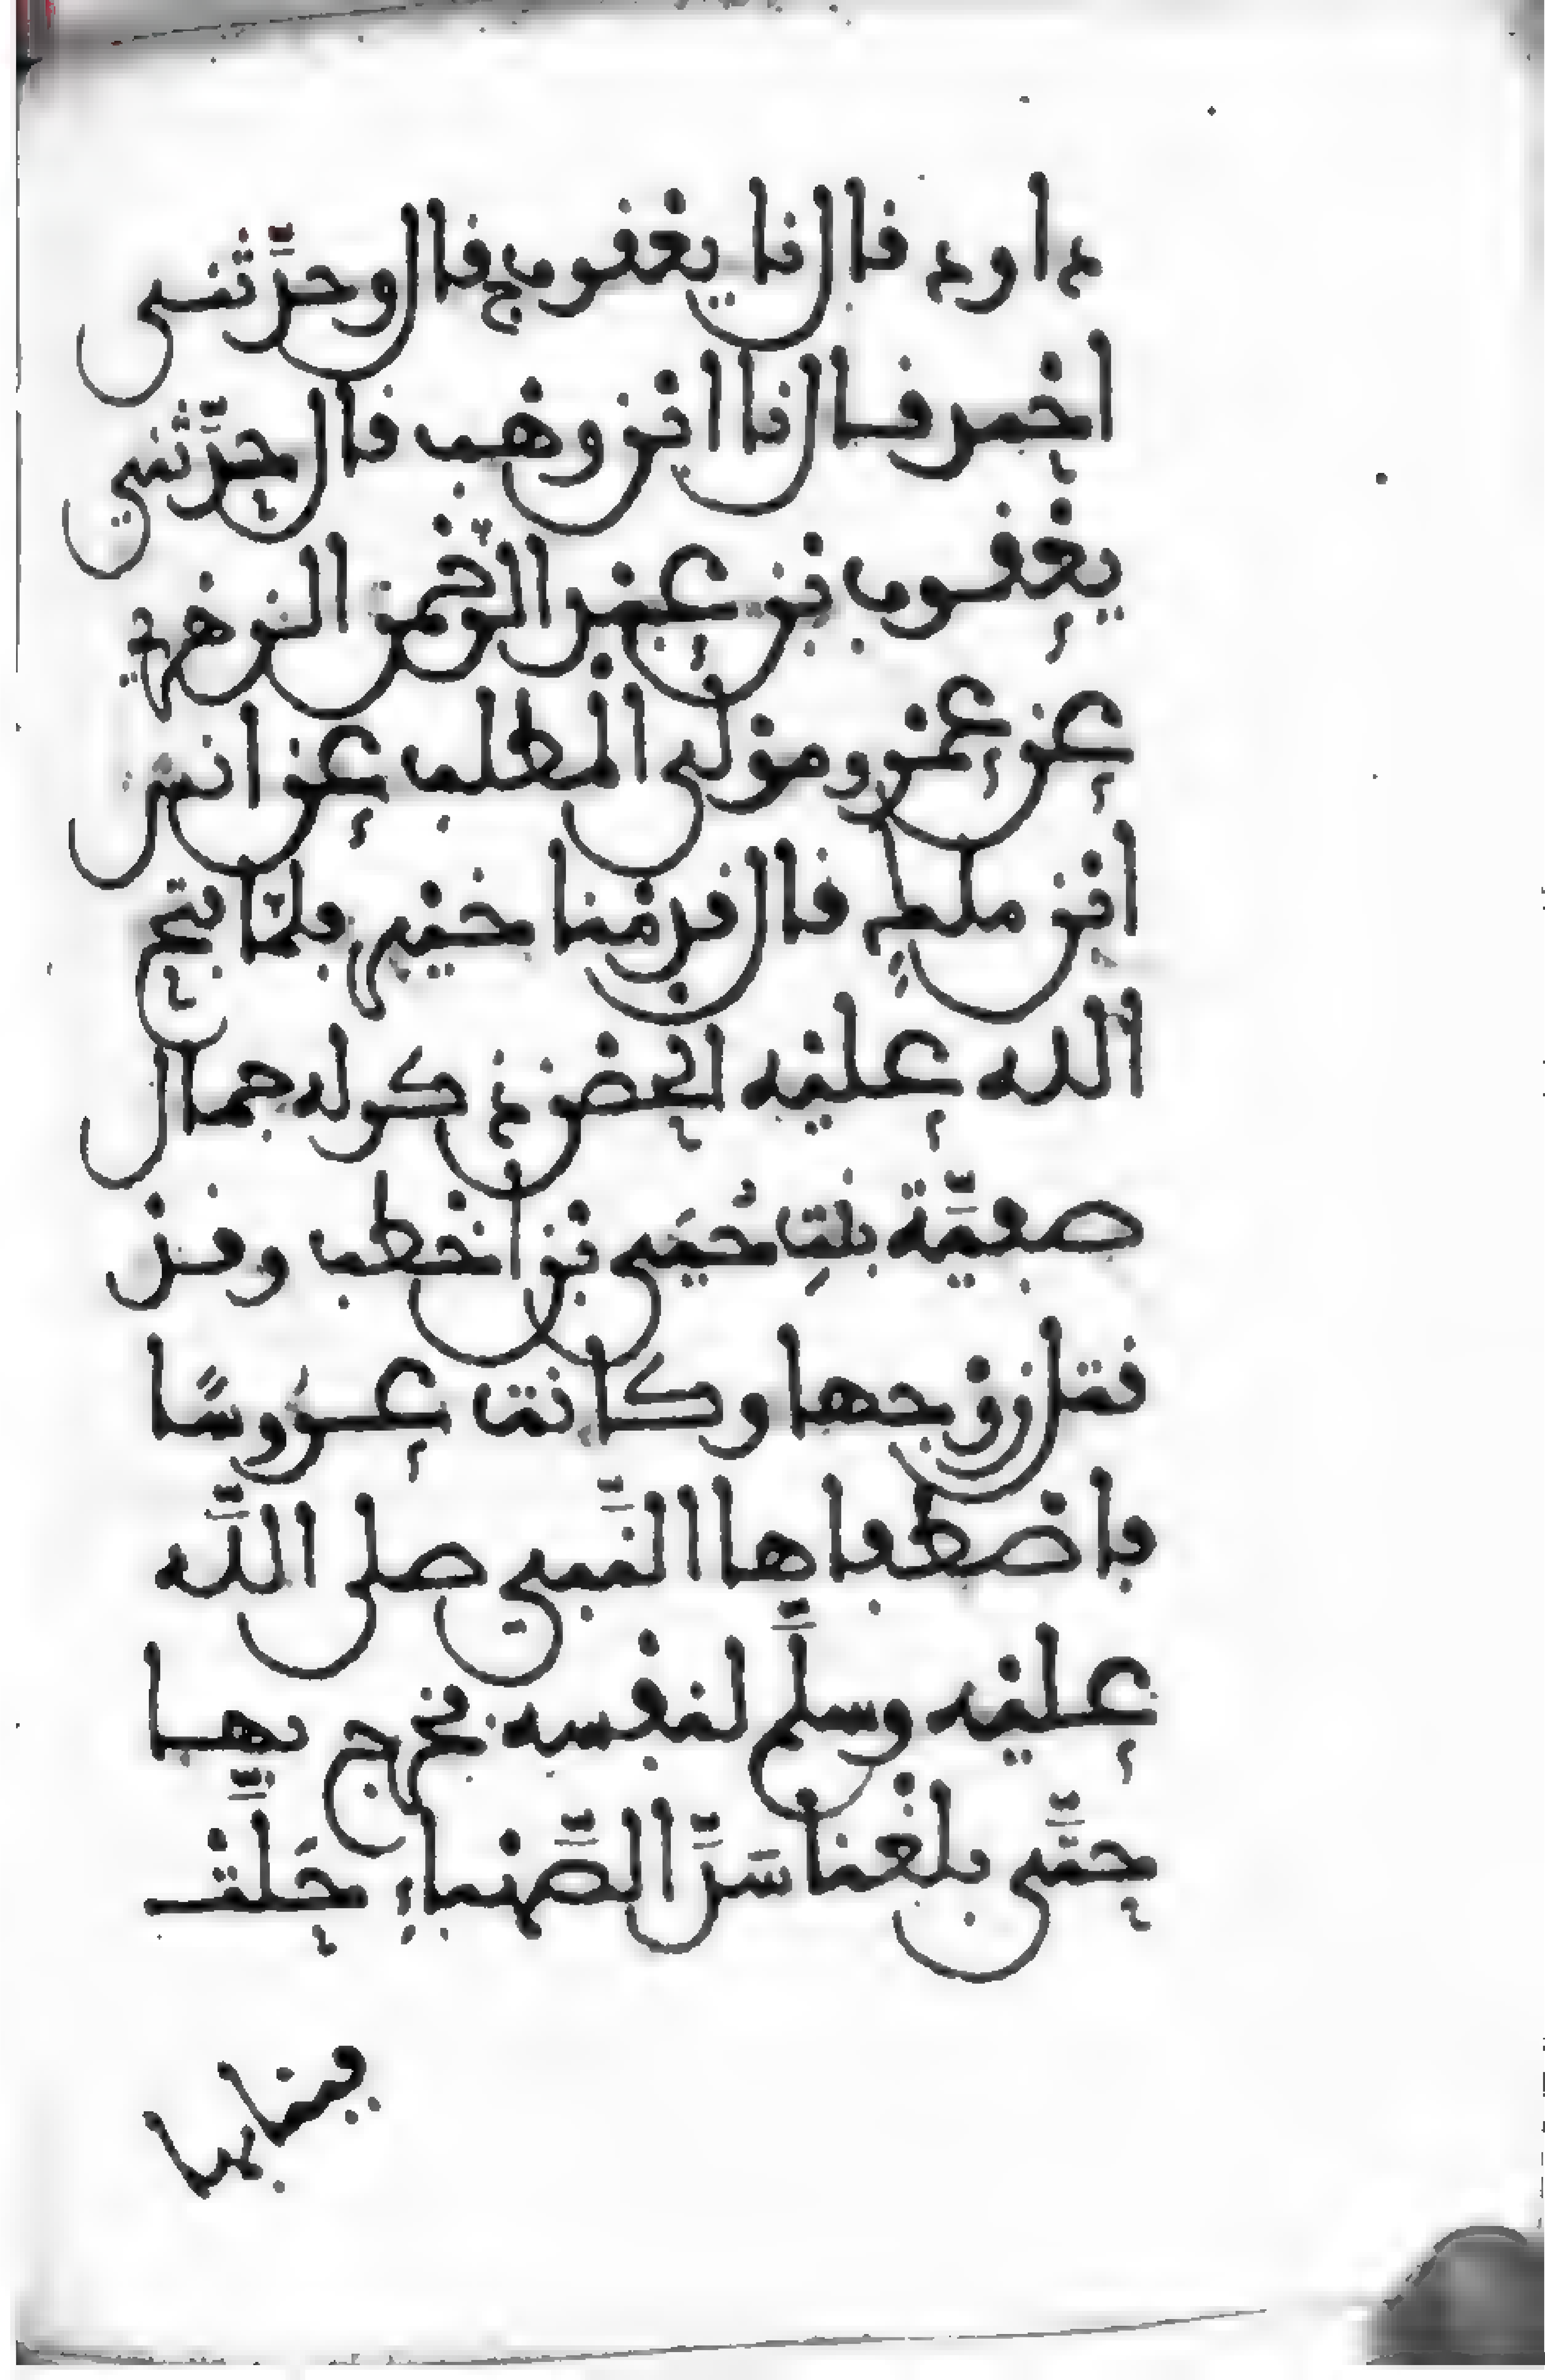 داود قال نا يعقوب ح قال وحدَّثني
احمد قال نا ابن وهب قال حدَّثني
يعقوب بن عبد الرحمن الزهري
عن عمرو مولى المطلب عن انس
ابن ملك قال قدمنا خيبر فلمّا فتح
الله عليه الحصن ذكر له جمال
صفيَّة بنتِ حُيَي بن اخطب وقد
قتل زوجها وكانت عروسًا
فاصطفاها النَّبي صلى اللَّه
عليه وسلَّم لنفسه فخرج بها
حتَّى بلغنا سَدَّ الصَّهباءِ حَلَّتْ
فبنا بها